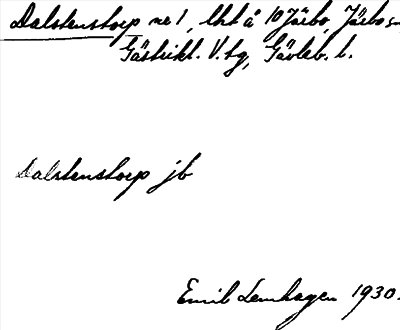 Dalstenstorp nr 1, lht å 10 Järbo, Järbo sn,
Gästrikl. V. tg, Gävleb. l.
Dalstenstorp jb
Emil Lemhagen 1930.